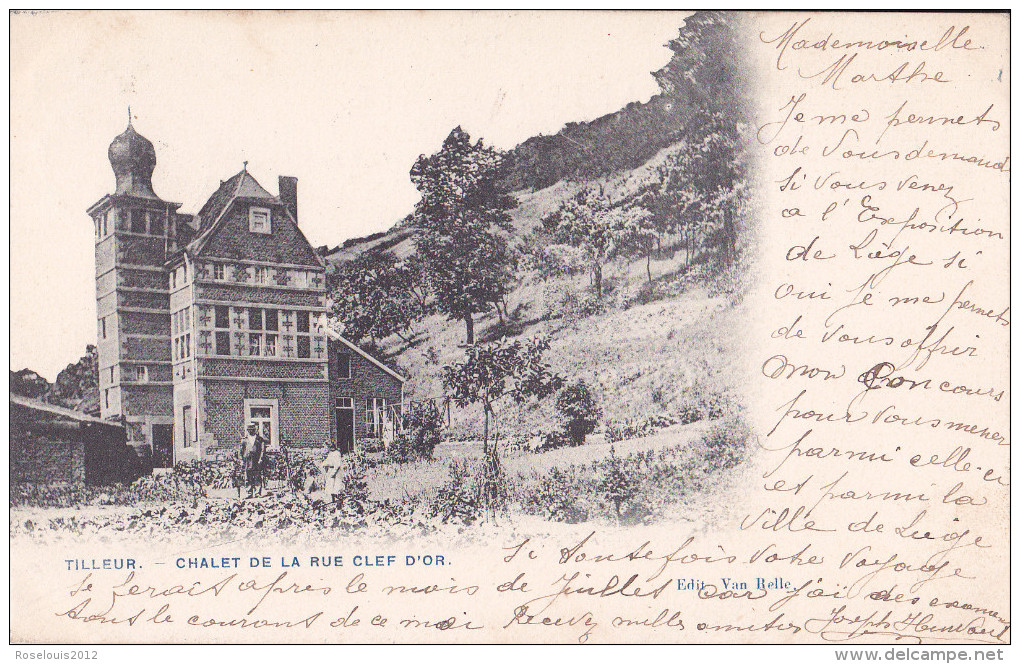 Mademoiselle
Marthe
Je me permets
de vous demand
si vous venez
a l'Exposition
de Liége si
oui je me permets
de vous offrir
mon concours
pour vous mener
parmi celle-ci
et parmi la
Ville de Liége
si toutefois votre voyage
TILLEUR. — CHALET DE LA RUE CLEF D'OR.
Edit. Van Relle.
se ferait après le mois de Juillet car j'ai des examens
tout le courant de ce moi Recevez milles amitiés Joseph
Roselouis2012
http://www.delcampe.net